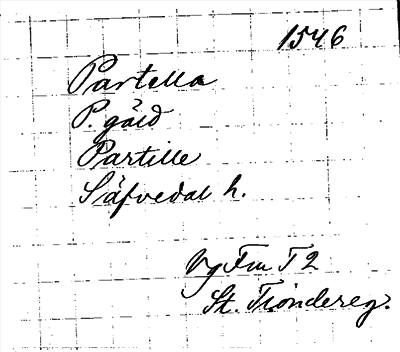 1546
Partella
P. gård
Partille
Säfvedal h.
Vg Fru T 2
St. Tiondereg.